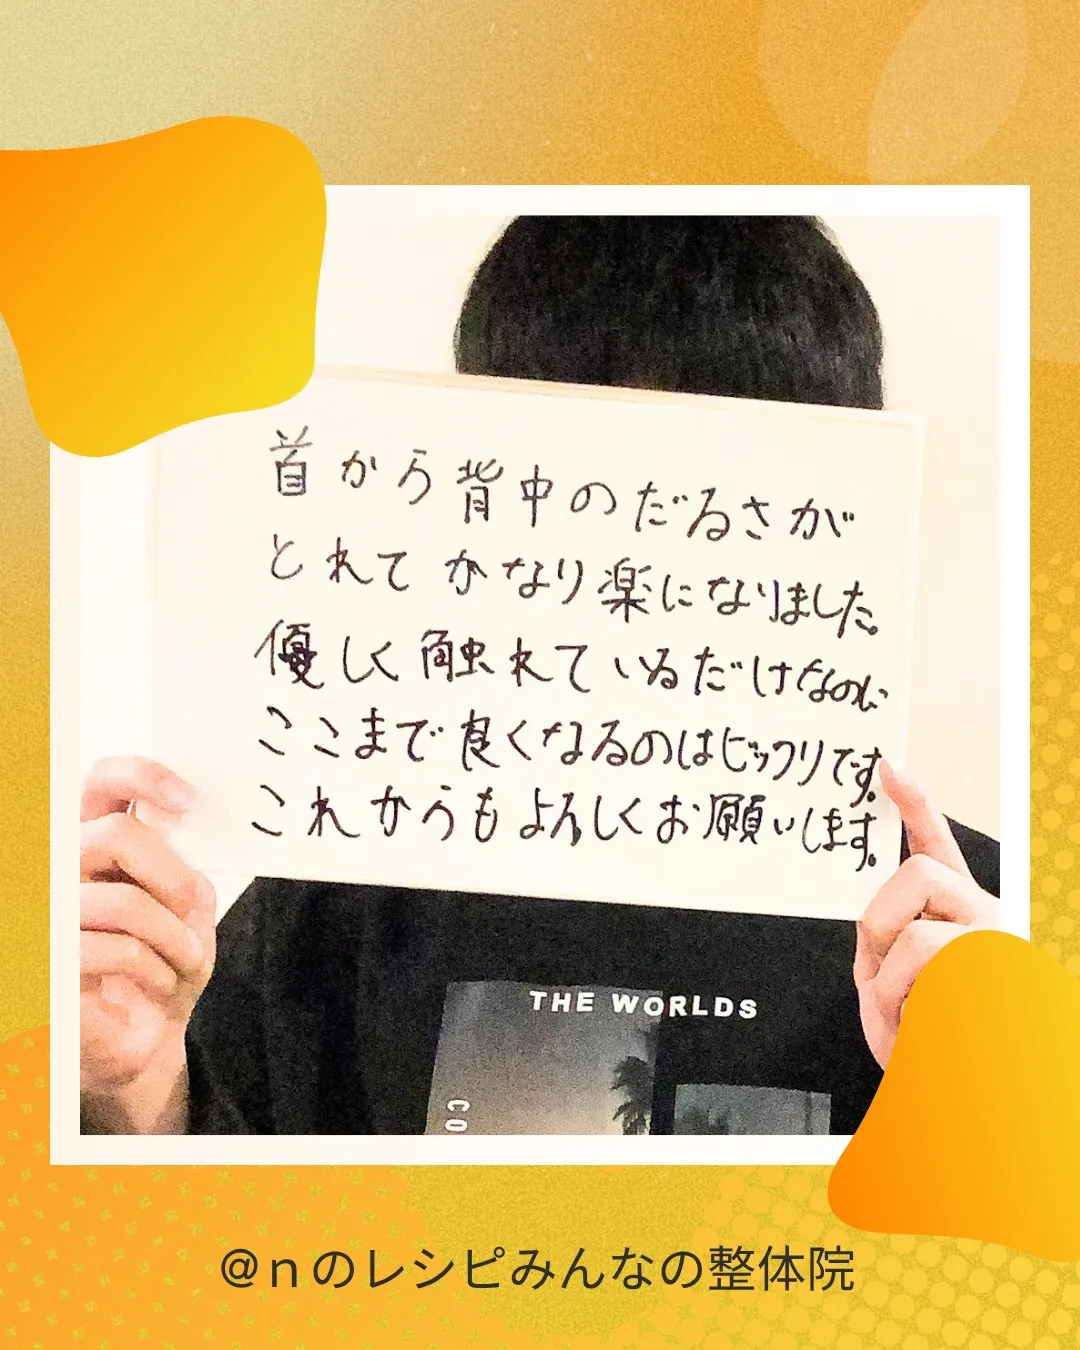 首から背中のだるさが
とれてかなり楽になりました。
優しく触れているだけなのに
ここまで良くなるのはビックリです。
これからもよろしくお願いします。
THE WORLDS
CO
@nのレシピみんなの整体院